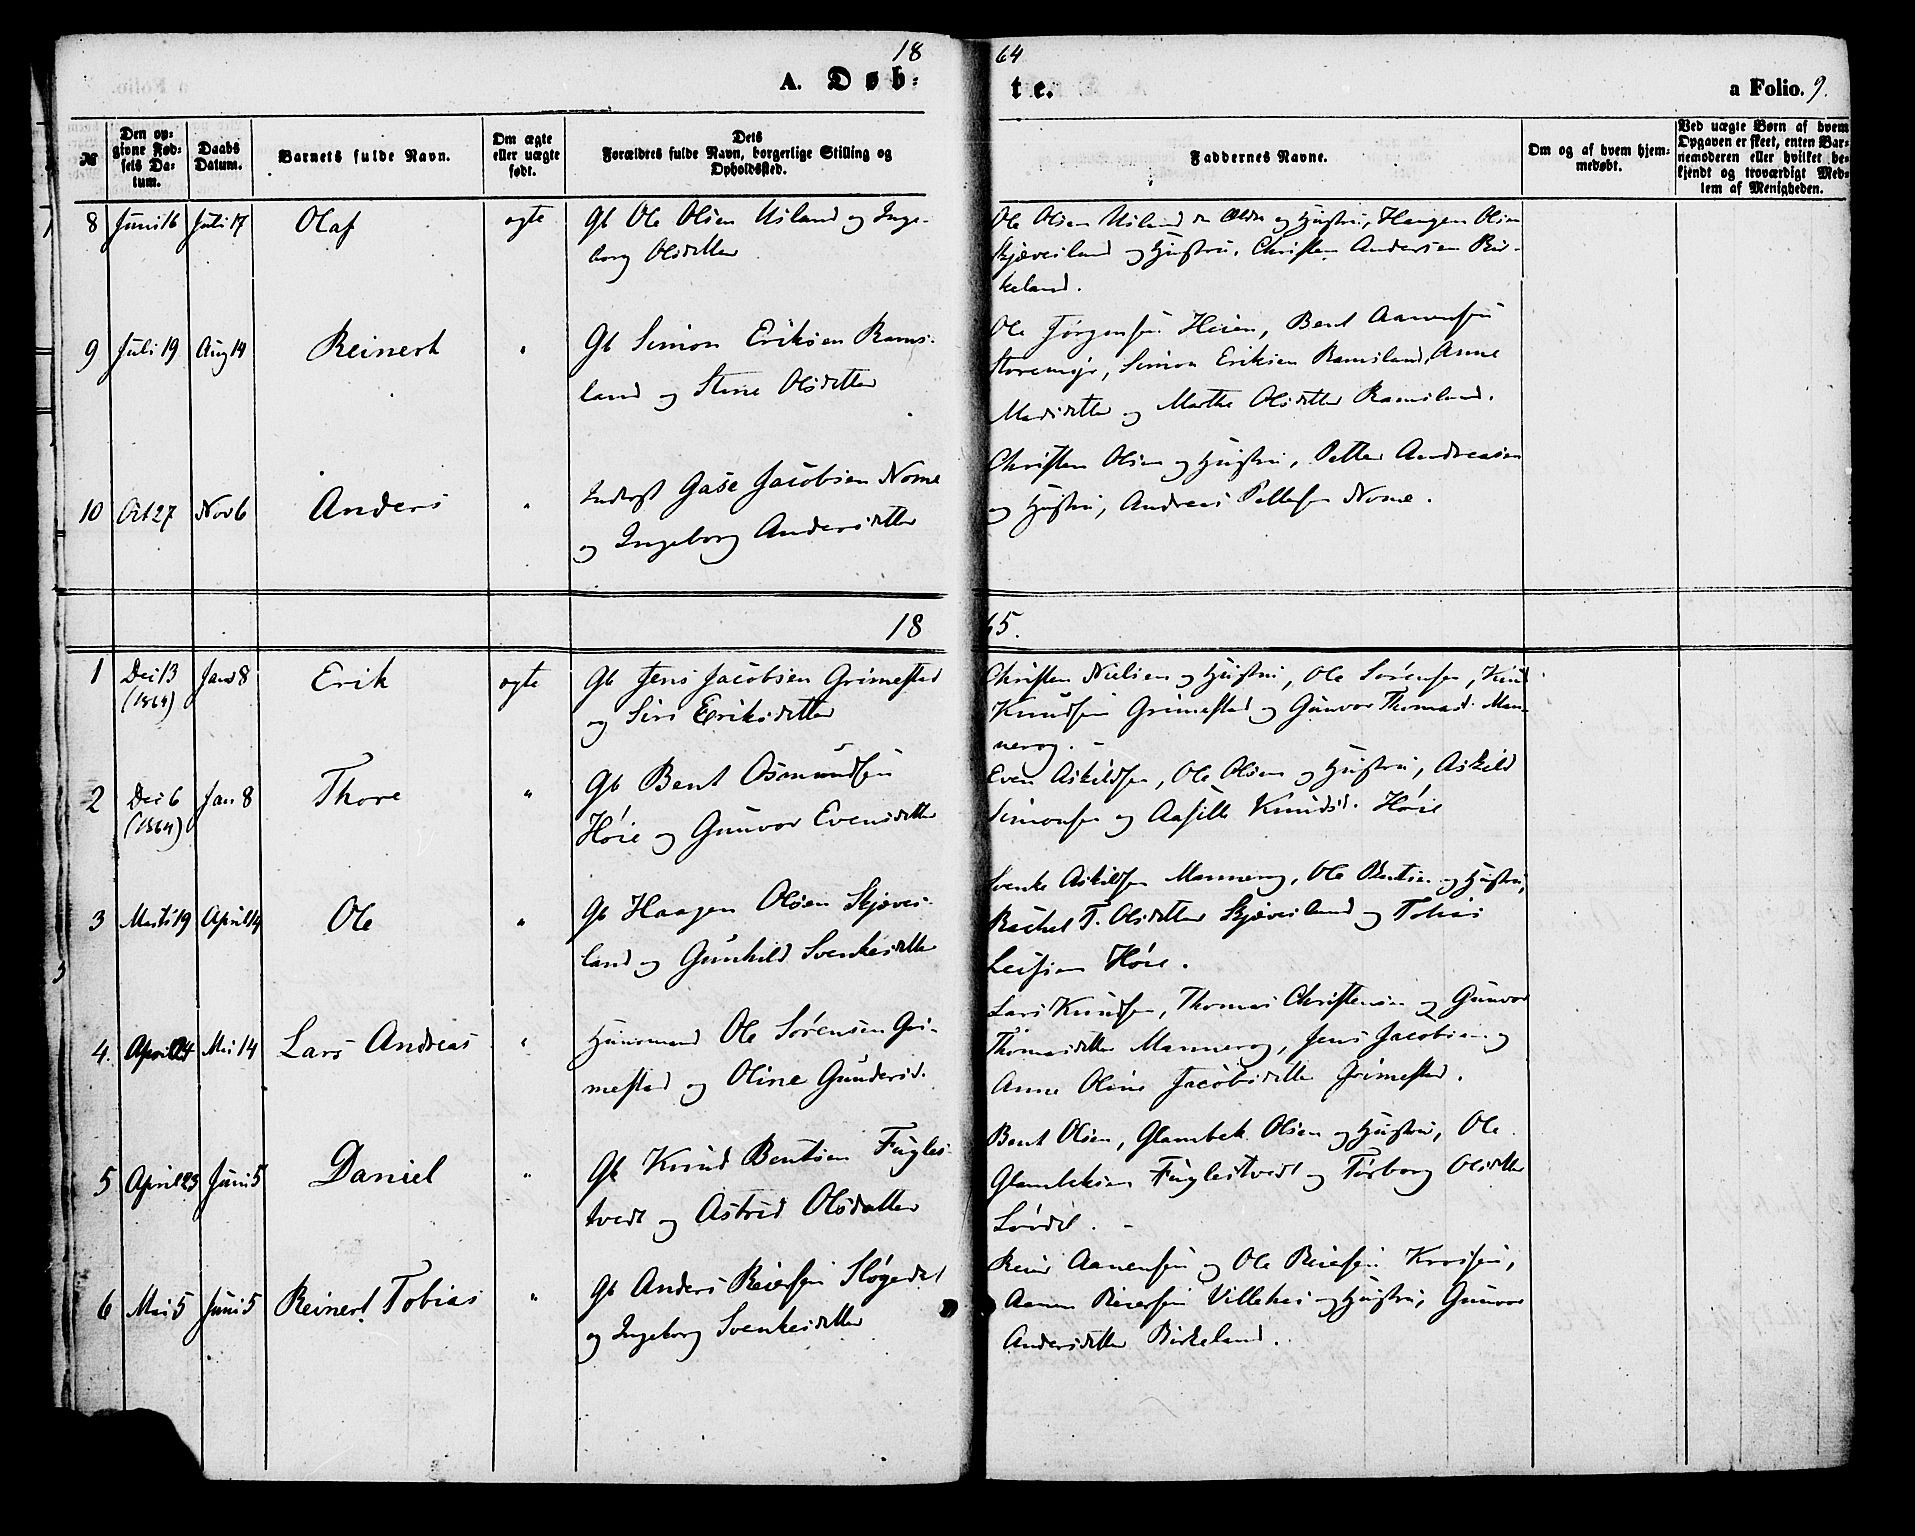 18 64
A. Døb: te. a Folio. 9.
№
Den op:
givne Fød:
sels Da:
tum.
Daabs
Datum.
Barnets fulde Navn.
Om ægte
eller uægte
født.
Dets
Forældres fulde Navn, borgerlige Stilling og
Opholdssted.
Faddernes Navne.
Om og af hvem hjem:
medøbt.
Ved uægte Børn af hvem
Opgaven er skeet, enten Bar:
nemoderen eller hvilket be:
kjendt og troværdigt Med:
lem af Menigheden.
8 Juni 16 Juli 17 Olaf ægte Gb Ole Olsen Usland og Inge-
borg Olsdatter
Ole Olsen Usland den Ældre og Hustru, Haagen Olsen
Skjæveisland og Hustru, Christen Andersen Bir-
keland.
9 Juli 19 Aug 14 Reinert " Gb Simon Eriksen Rams-
land og Stine Olsdatter
Ole Jørgensen Heien, Bent Aanensen
Storemyr, Simon Eriksen Ramsland, Anne
Madsdatter og Marthe Olsdatter Ramsland.
10 Oct 27 Nov 6 Anders " Inderst Gase Jacobsen Nome
og Ingeborg Andersdatter
Christen Olsen og Hustru, Petter Andreasen
og Hustru, Andreas Pettersen Nome.
18 65.
1 Dec 13
(1864)
Jan 8 Erik ægte Gb Jens Jacobsen Grimestad
og Siri Eriksdatter
Christen Nielsen og Hustru, Ole Sørensen, Knud
Knudsen Grimestad og Gunvor Thomasd. Man-
nerog.
2 Dec 6
(1864)
Jan 8 Thore " Gb Bent Osmundsen
Høie og Gunvor Evensdatter
Even Askildsen, Ole Olsen og Hustru, Askild
Simonsen og Aasille Knudsd. Høie
3 Marts 19 April 14 Ole " Gb Haagen Olsen Skjæveis-
land og Gunhild Svenkesdatter
Svenke Askildsen Mannerog, Ole Bentsen og Hustru,
Rachel T. Olsdatter Skjæveisland og Tobias
Høie.
4. April 24 Mai 14 Lars Andreas " Huusmand Ole Sørensen Gri-
mestad og Oline Gundersd.
Lars Knudsen, Thomas Christensen og Gunvor
Thomasdatter Mannerog, Jens Jacobsen og
Anne Oline Jacobsdatter Grimestad.
5 April 23 Juni 5 Daniel " Gb Knud Bentsen Fugles-
tvedt og Astrid Olsdatter
Bent Olsen, Glambek Olsen og Hustru, Ole
Glambeksen Fuglestvedt og Torborg Olsdatter
Lørdal.
6 Mai 5 Juni 5 Reinert Tobias " Gb Anders Reiersen Sløgedal
og Ingeborg Svenkesdatter
Reier Aanensen og Ole Reiersen
Aanen Reiersen og Hustru, Gunvor
Andersdatter Birkeland.